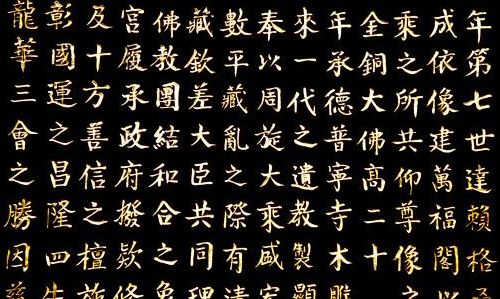 年第七世達賴格
成依像建萬福閣以
乘之所共仰尊像之
金銅大佛高二十
年承德普寧寺木雕
來一代之遺教製顯
奉以周旋大乘盛
數平藏亂之際有清
藏欽差大臣共同理
佛教團結和合之象
宮履承政府撥款修
及十方善信之檀施
彰國運之昌隆四生
龍華三會之勝因茲